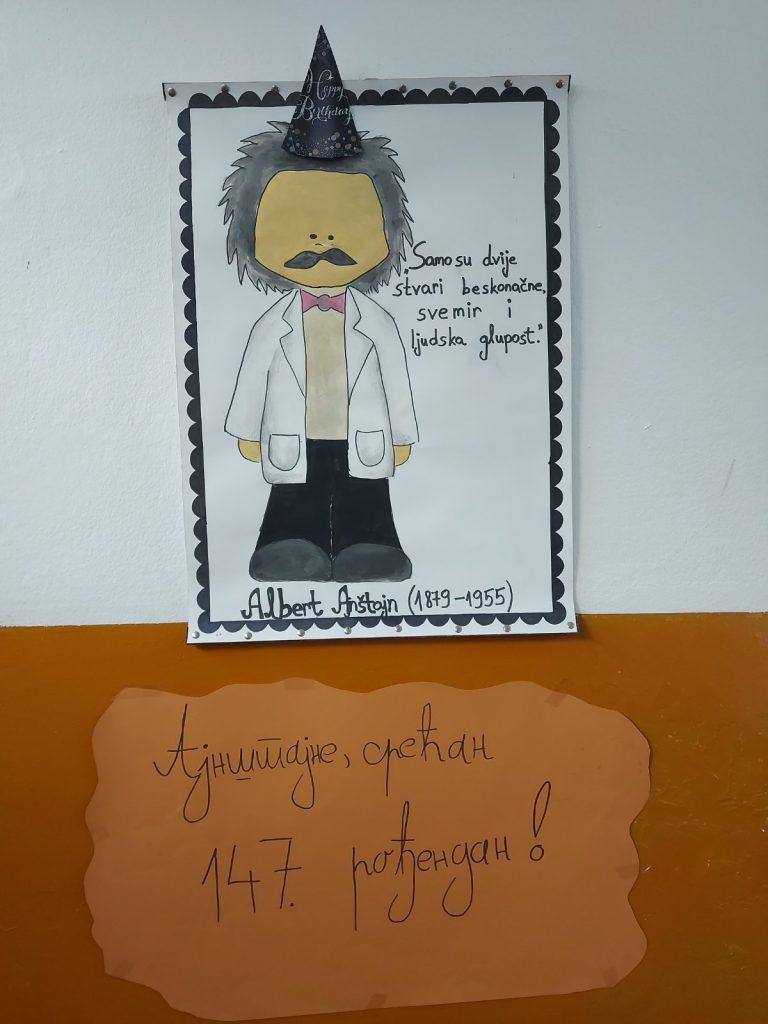 Happy
Birthday
„Samo su dvije
stvari beskonačne,
svemir i
ljudska glupost.“
Albert Anštajn (1879-1955)
Ајнштајне, срећан
147. рођендан!